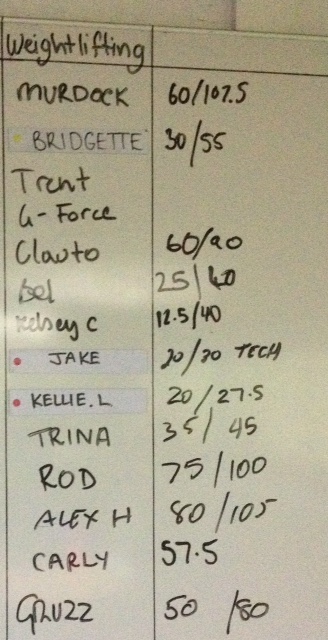 Weightlifting
MURDOCK 60/107.5
BRIDGETTE 30/55
Trent
G-Force
Clawto 60/90
Bel 25/40
Kelsey C 12.5/40
JAKE 20/20 TECH
KELLIE.L 20/27.5
TRINA 35/45
ROD 75/100
ALEX H 80/105
CARLY 57.5
GRUZZ 50/80